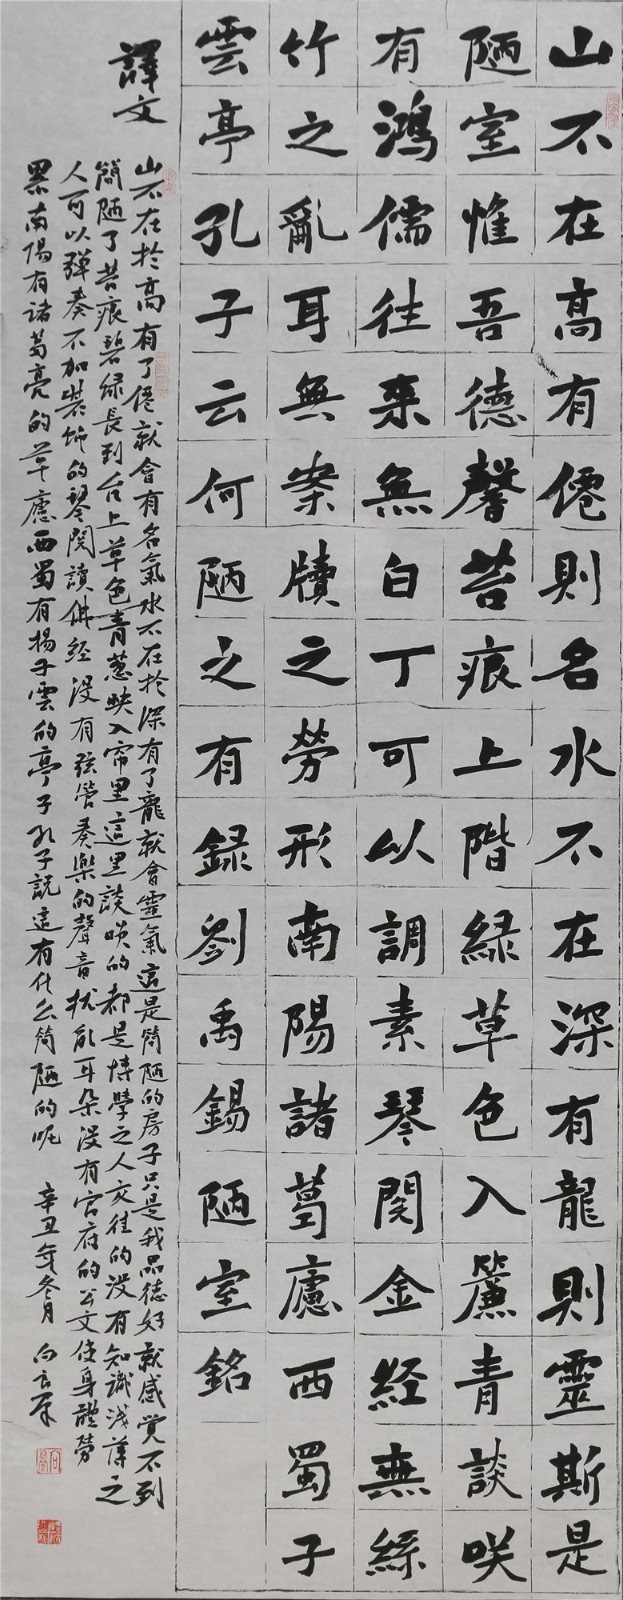 山不在高有僊則名水不在深有龍則靈斯是
陋室惟吾德馨苔痕上階綠草色入簾青談咲
有鴻儒往來無白丁可以調素琴閱金經無絲
竹之亂耳無案牘之勞形南陽諸葛廬西蜀子
雲亭孔子云何陋之有録劉禹錫陋室銘
譯文
山不在於高有了僊就會有名氣水不在於深有了龍就會靈氣這是簡陋的房子只是我品德好就感覺不到
簡陋了苔痕碧綠長到台上草色青葱映入帘里這里談咲的都是博學之人交往的沒有知識淺薄之
人可以彈奏不加裝飾的琴閱讀佛經沒有弦管奏樂的聲音扰亂耳朵沒有官府的公文使身體勞
累南陽有諸葛亮的草廬西蜀有揚子雲的亭子孔子説這有什么簡陋的呢 辛丑年冬月